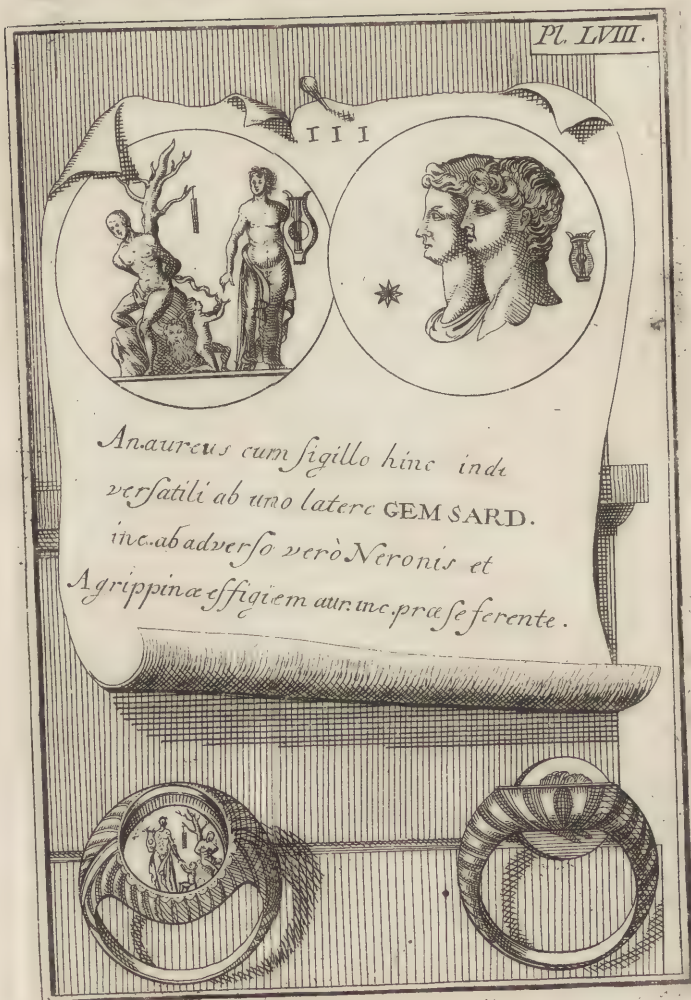 Pl. LVIII.
III
An.aureus cum ſigillo hinc inde
verſatili ab uno latere GEM SARD.
inc.ab adverſo verò Neronis et
Agrippinæ effigiem aur.inc.præ ſe ferente.